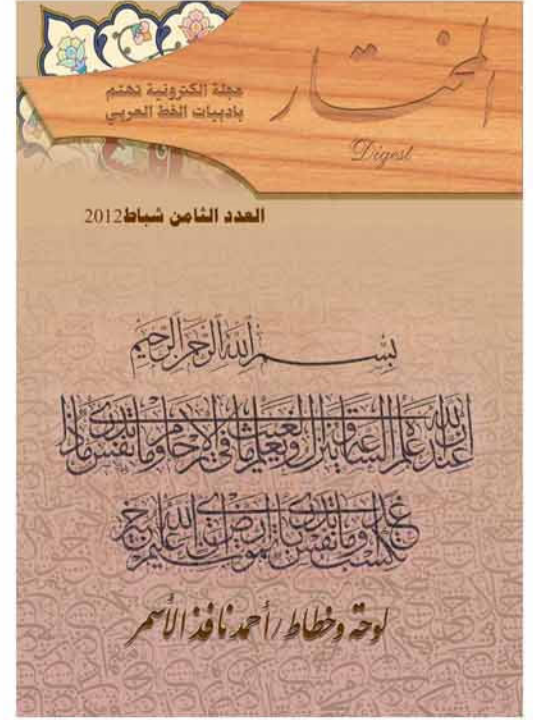 المختار
Digest
مجلة الكترونية تهتم
بادبيات الخط العربي
العدد الثامن شباط2012
بسم الله الرحمن الرحيم
إن الله عنده علم الساعة وينزل الغيث ويعلم ما في الأرحام وما تدري نفس ماذا
تكسب غدا وما تدري نفس بأي أرض تموت إن الله عليم خبير
لوحة وخطاط / أحمد نافذ الأسمر